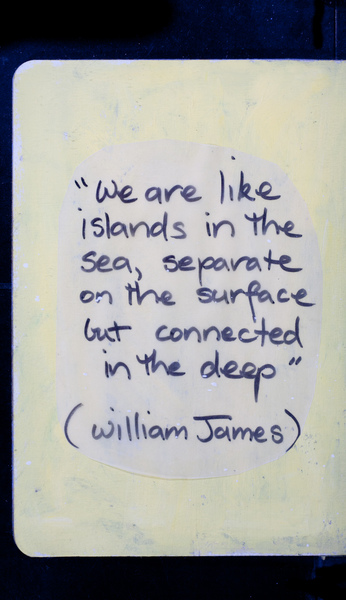 "We are like
islands in the
sea, separate
on the surface
but connected
in the deep"
(William James)